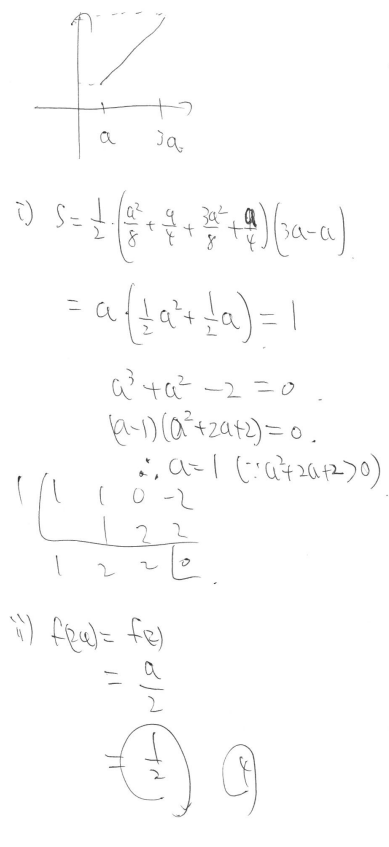 a 3a
i) S = 1/2 · (a²/8 + a/4 + 3a²/8 + a/4)(3a-a).
= a (1/2 a² + 1/2 a) = 1
a³ + a² - 2 = 0.
(a-1)(a²+2a+2) = 0.
∴ a=1 (∵ a²+2a+2>0)
1 | 1 1 0 -2
1 2 2
1 2 2 | 0
ii) f(2a) = f(2)
= a/2
= 1/2 4